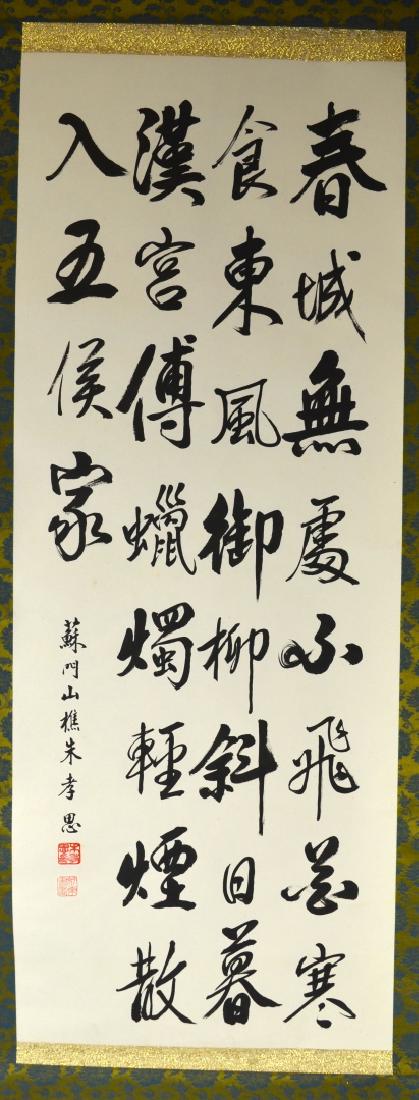 春城無處不飛花寒
食東風御柳斜日暮
漢宮傅蠟燭輕煙散
入五侯家
蘇門山樵朱孝思